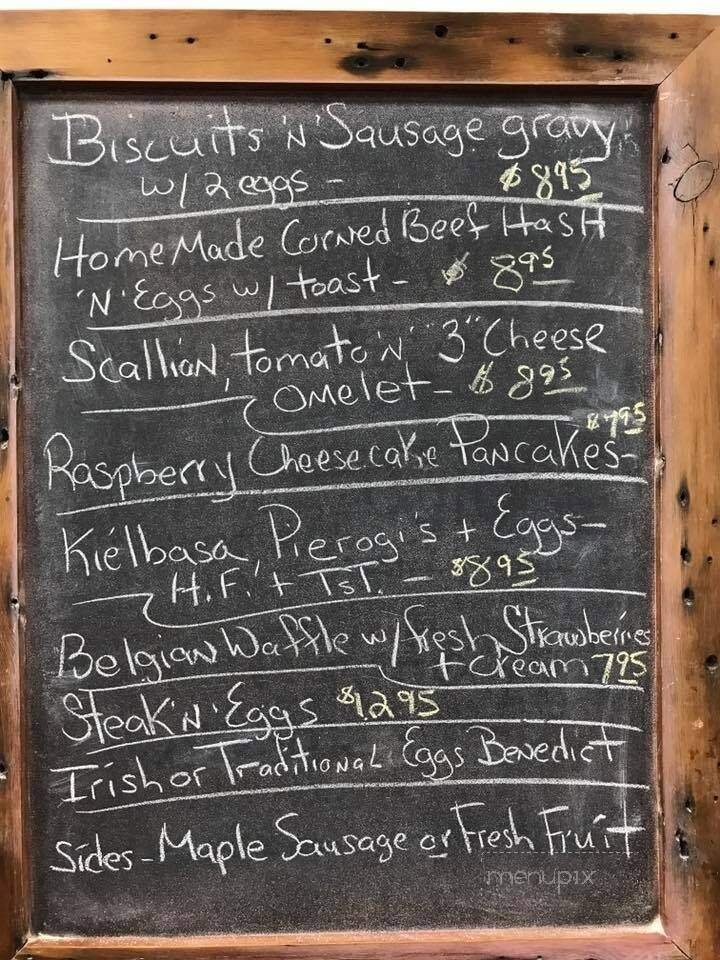 Biscuits 'N' Sausage gravy
w/ 2 eggs - $8 95
HomeMade Corned Beef Hash
'N' Eggs w/ toast - $ 8 95
Scallion, tomato 'N' "3" Cheese
Omelet - $ 8 95
$7 95
Raspberry Cheesecake Pancakes -
Kielbasa, Pierogi's + Eggs -
H.F. + TsT. - $8 95
Belgian Waffle w/ fresh Strawberries
+ cream 7 95
Steak 'N' Eggs $12 95
Irish or Traditional Eggs Benedict
Sides - Maple Sausage or Fresh Fruit
menupix